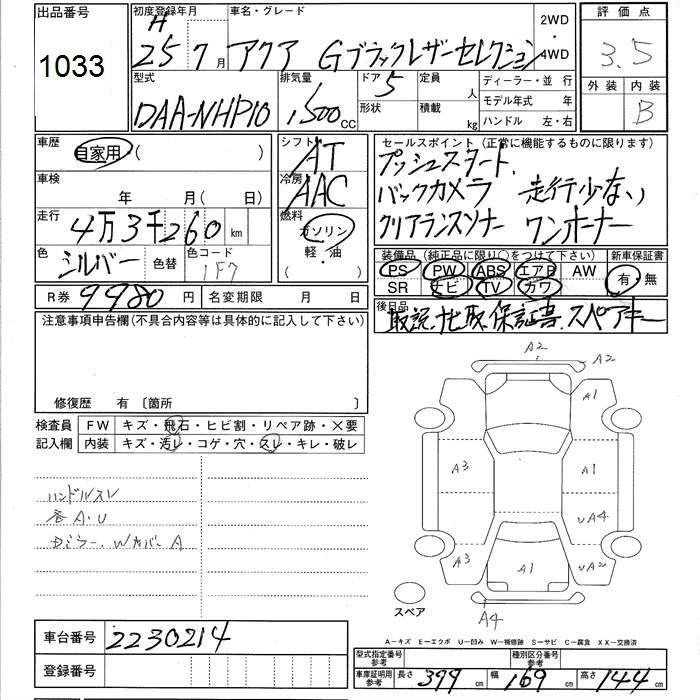 出品番号
1033
初度登録年月
車名・グレード
H
25 7月 アクア Gブラックレザーセレクション
2WD
・
4WD
評価点
3.5
外装 内装
B
型式
DAA-NHP10
排気量
1,500CC
ドア
5
形状
定員
人
積載
kg
ディーラー・並行
モデル年式 年
ハンドル 左・右
車歴
自家用 ( )
車検
年 月( 日)
走行
4万3千260km
色
シルバー
色替
色コード
1F7
シフト
AT
冷房
AAC
燃料
ガソリン
軽・油
( )
セールスポイント (正常に機能するものに限ります)
プッシュスタート、
バックカメラ 走行少ない
クリアランスソナー ワンオーナー
装備品 (純正品に限り○をつけて下さい)
新車保証書
PS PW ABS エアB AW
SR ナビ TV カワ
有・無
R券 9980円
名変期限 月 日
後日品
取説、ナビ取、保証書、スペアキー
注意事項申告欄(不具合内容等は具体的に記入して下さい)
修復歴 有 〔箇所 〕
検査員
記入欄
FW キズ・飛石・ヒビ割・リペア跡・×要
内装 キズ・汚レ・コゲ・穴・スレ・キレ・破レ
ハンドルスレ
各A・U
Wカバー A
A2
A2
A1
A3
A1
UA4
A3
A1
UA2
A4
スペア
A-キズ E-エクボ U-凹み W-補修跡 S-サビ C-腐食 XX-交換済
車台番号 2230214
登録番号
型式指定番号
参考
種別区分番号
参考
車庫証明用
参考
長さ 399cm 幅 169cm 高さ 144cm